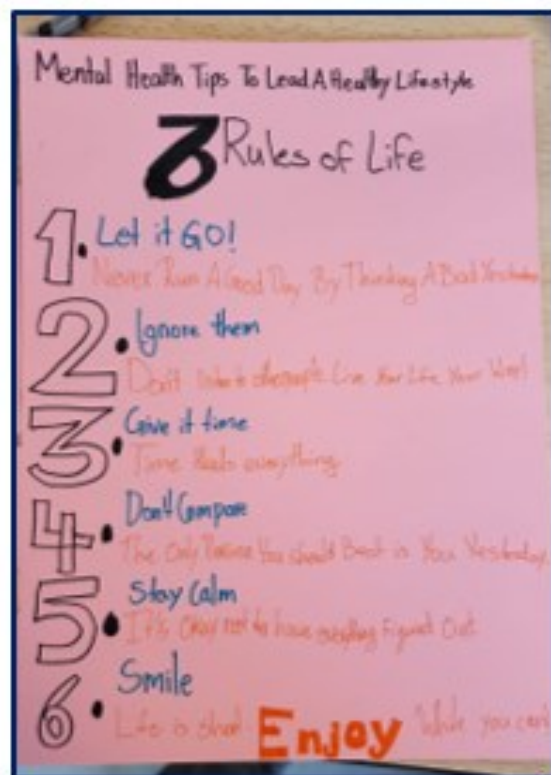 Mental Health Tips To Lead A Healthy Lifestyle
6 Rules of Life
1. Let it GO!
Never Ruin A Good Day By Thinking A Bad Yesterday
2. Ignore them
Don't listen to people Live Your Life Your Way!
3. Give it time
Time Heals everything
4. Don't Compare
The Only Person You should Beat is You Yesterday
5. Stay Calm
It's Okay not to have everything Figured Out
6. Smile
Life is short Enjoy While you can